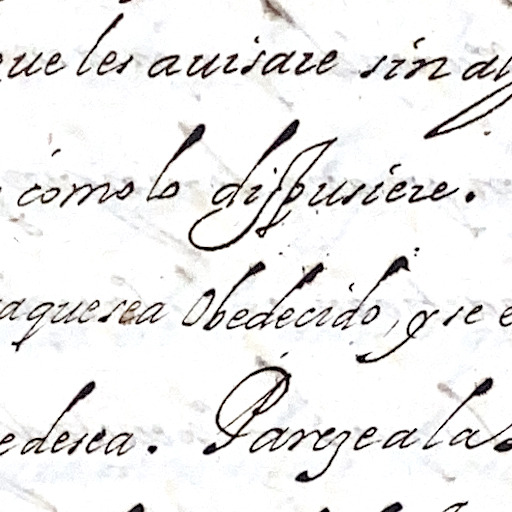 que les auisare sin
como lo dispusiere.
aquesea Obedecido, y se e
edesea. Parezealas